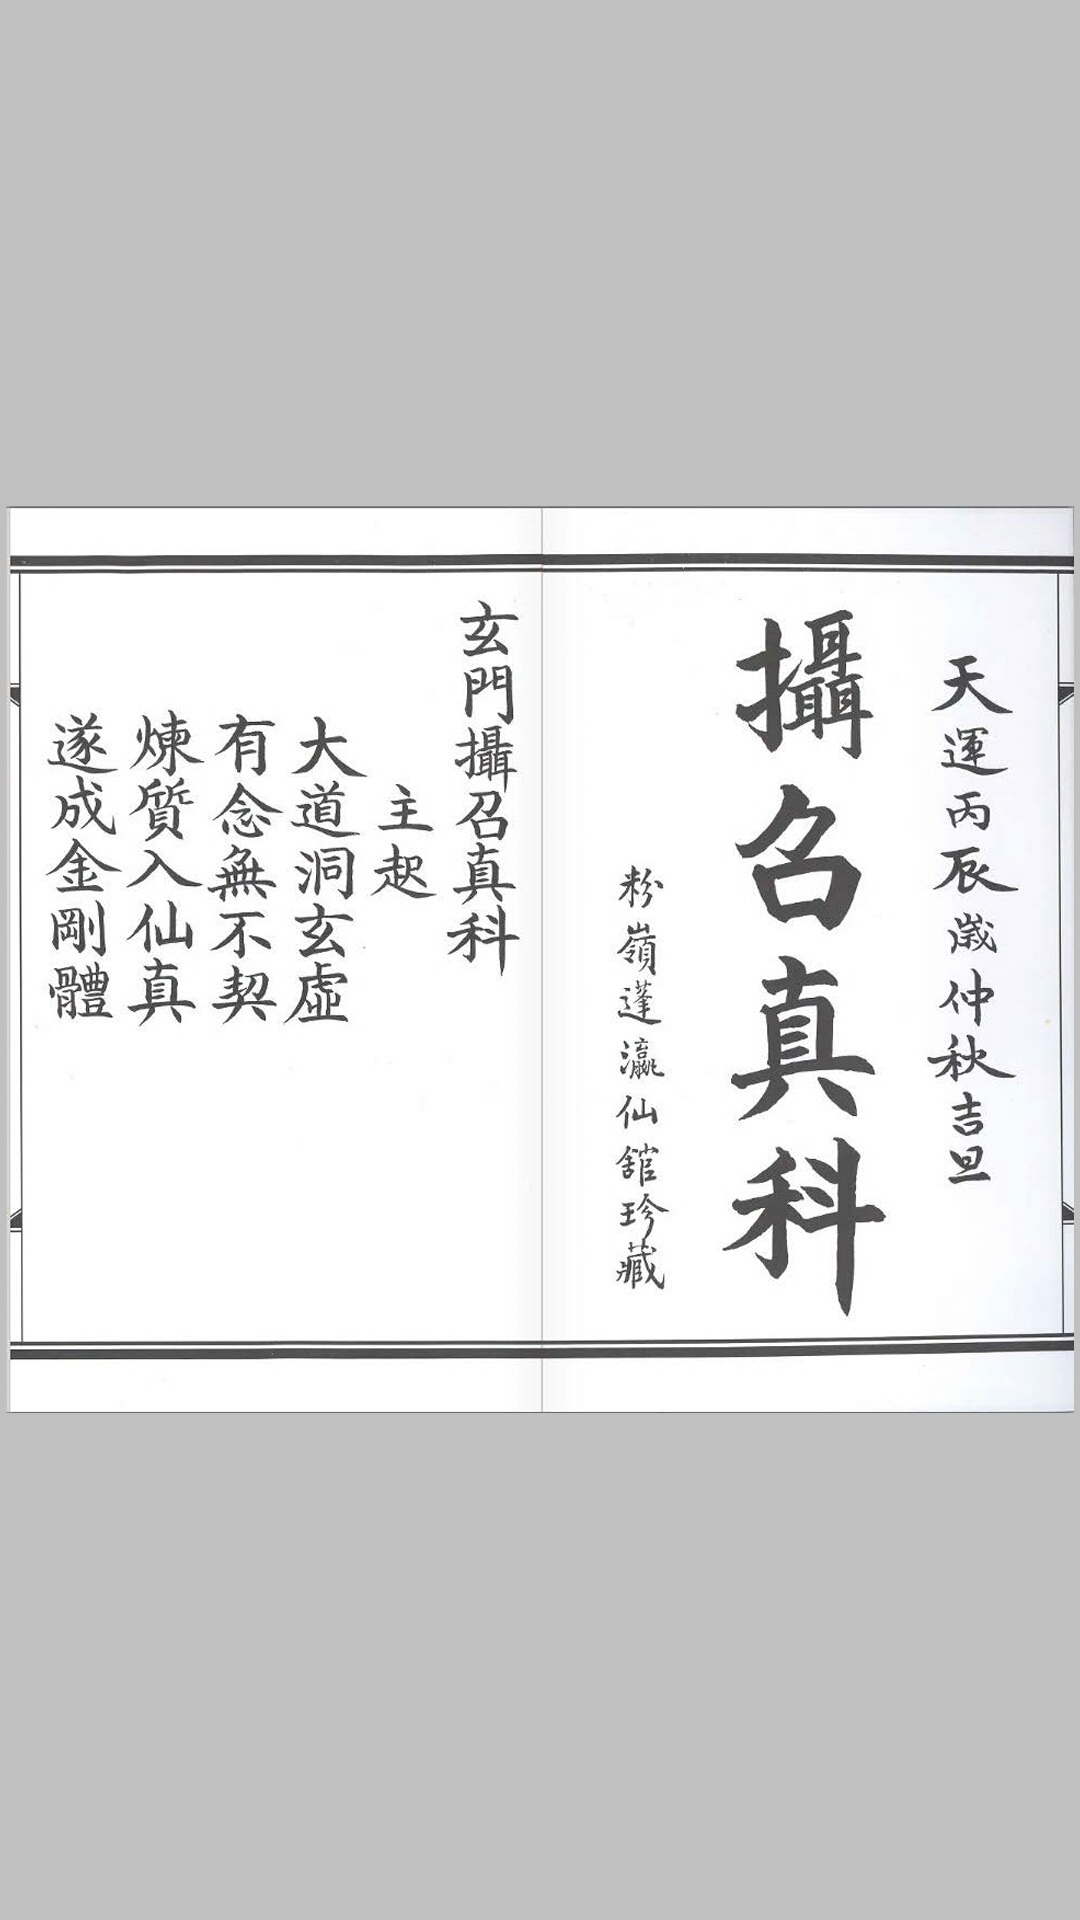 天運丙辰歲仲秋吉旦
攝召真科
粉嶺蓬瀛仙舘珍藏
玄門攝召真科
主起
大道洞玄虛
有念無不契
煉質入仙真
遂成金剛體